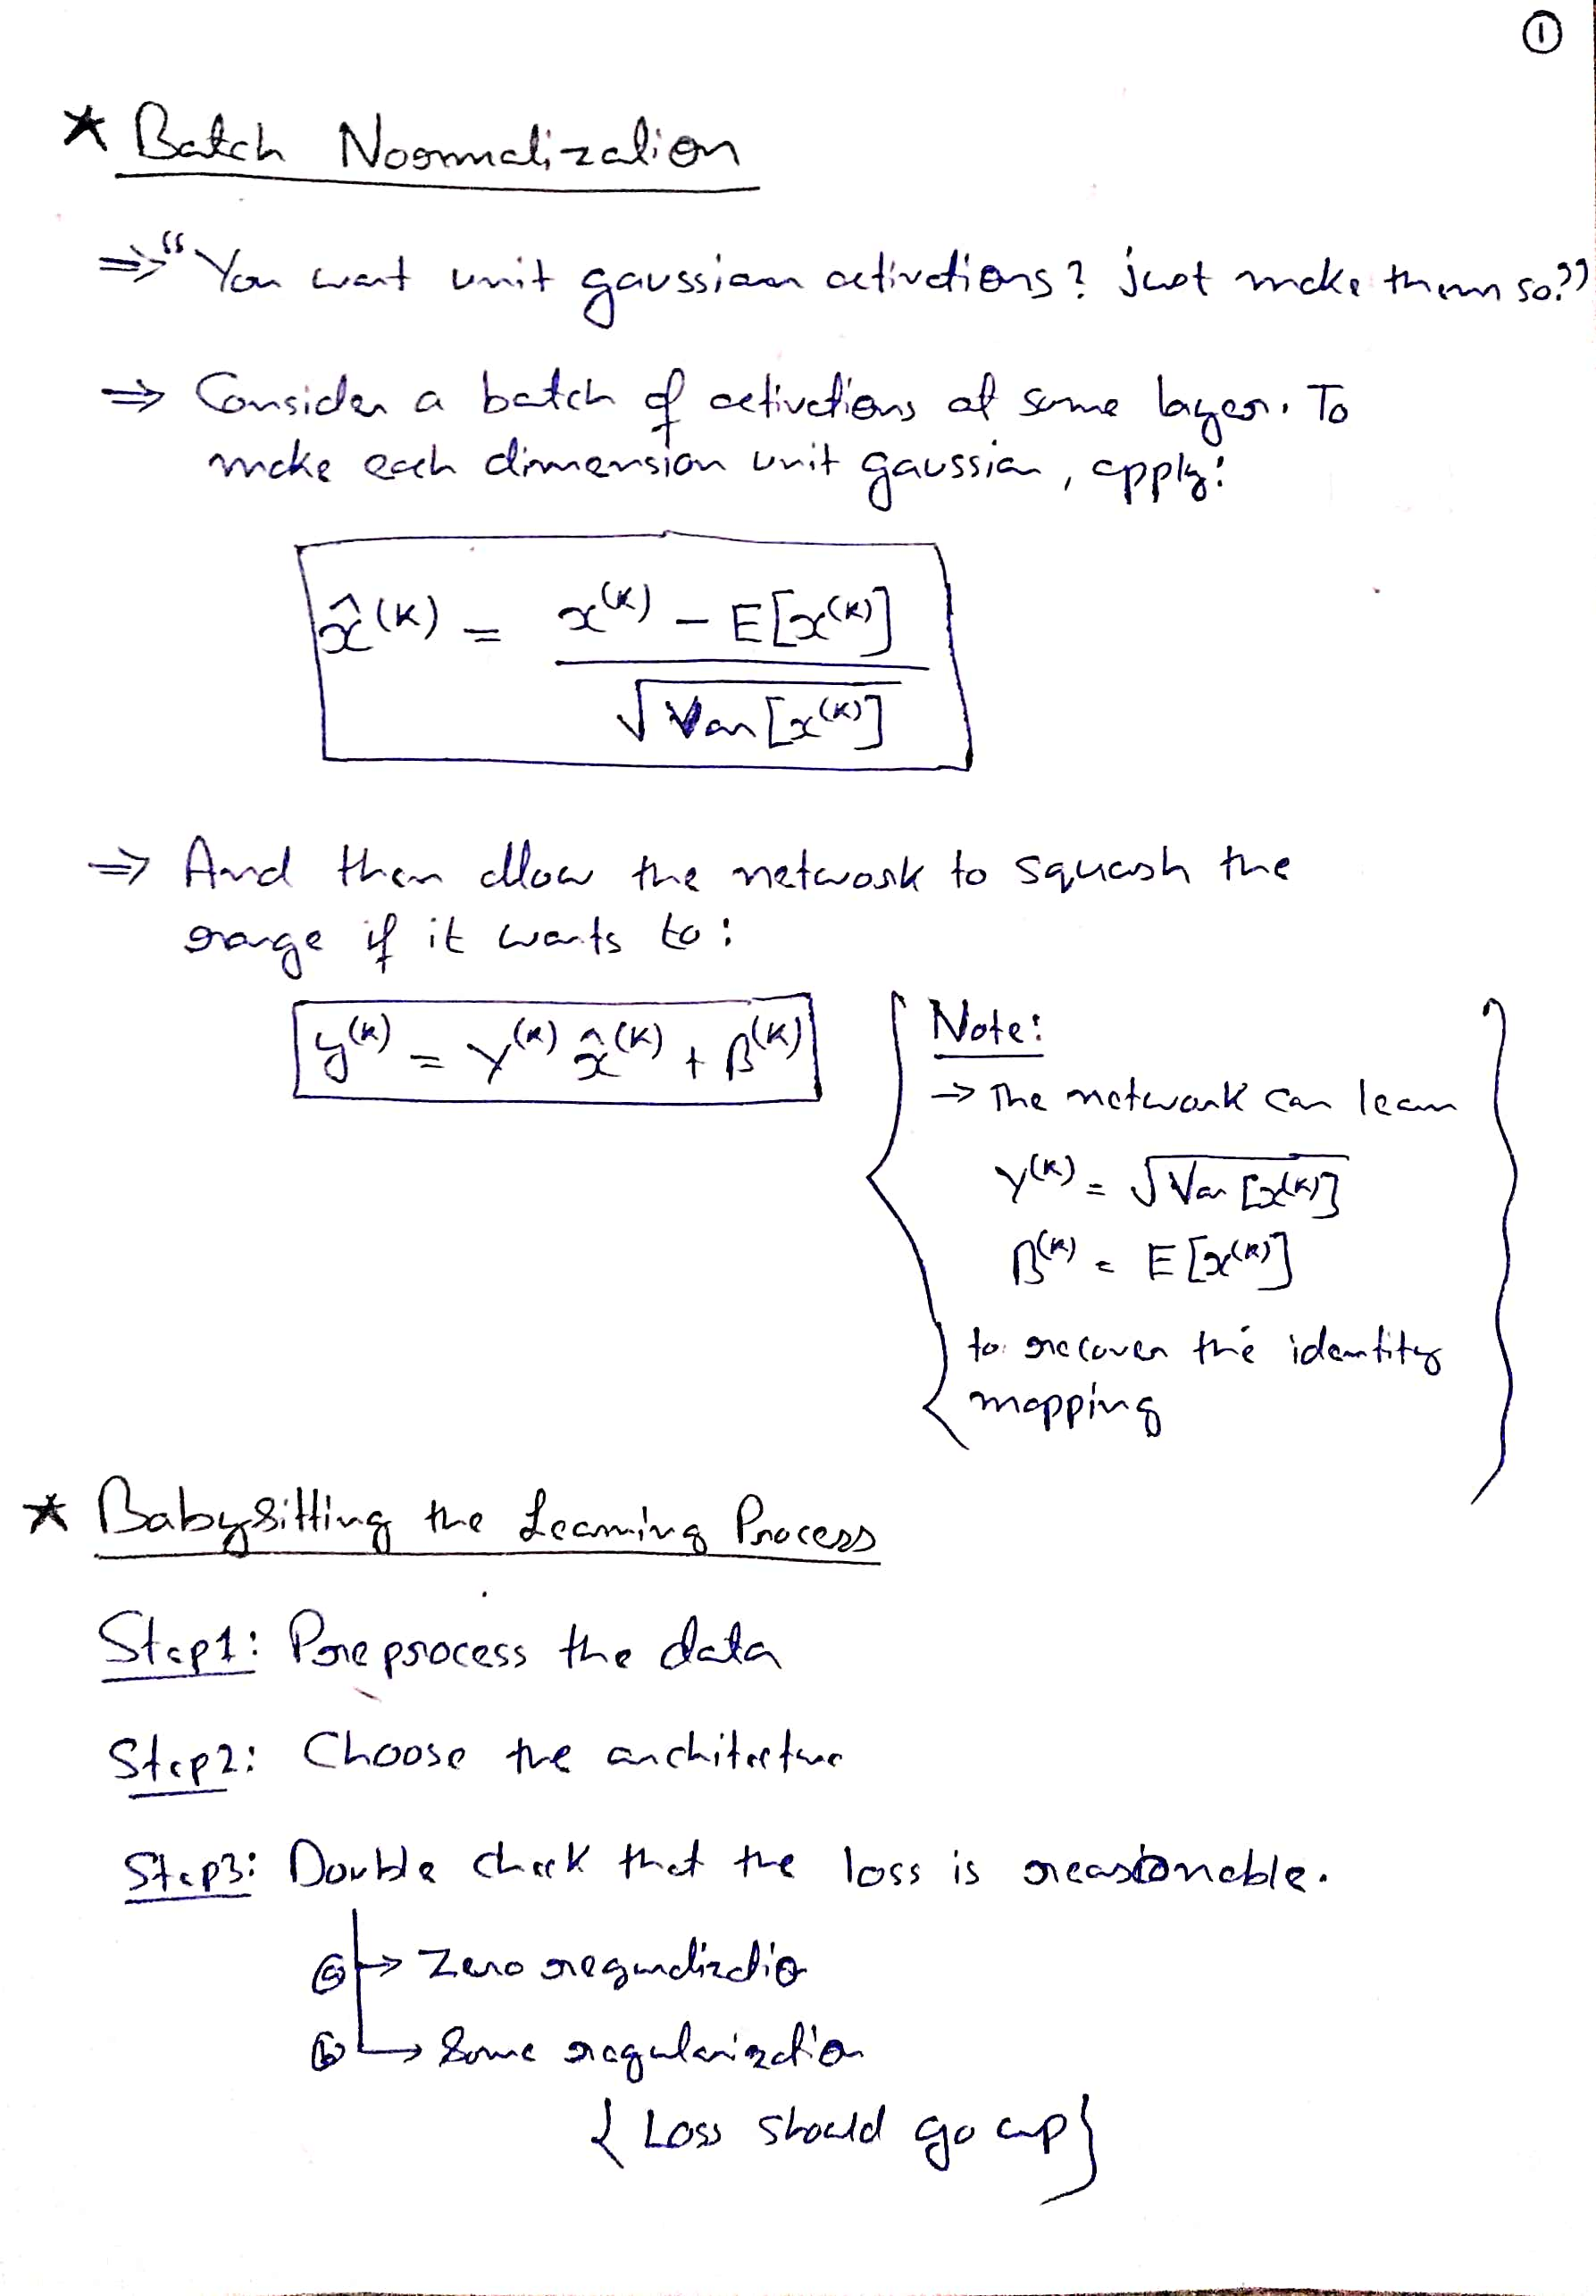 ①
* Batch Normalization
⇒ "You want unit gaussian activations? just make them so."
⇒ Consider a batch of activations at some layer. To
make each dimension unit gaussian, apply:
x̂^(k) = (x^(k) − E[x^(k)]) / √Var[x^(k)]
⇒ And then allow the network to squash the
range if it wants to:
y^(k) = γ^(k) x̂^(k) + β^(k)
Note:
→ The network can learn
γ^(k) = √Var[x^(k)]
β^(k) = E[x^(k)]
to recover the identity
mapping
* Babysitting the Learning Process
Step1: Preprocess the data
Step2: Choose the architecture
Step3: Double check that the loss is reasonable.
ⓐ → Zero regularizatio
ⓑ → Some regularization
{Loss should go up}